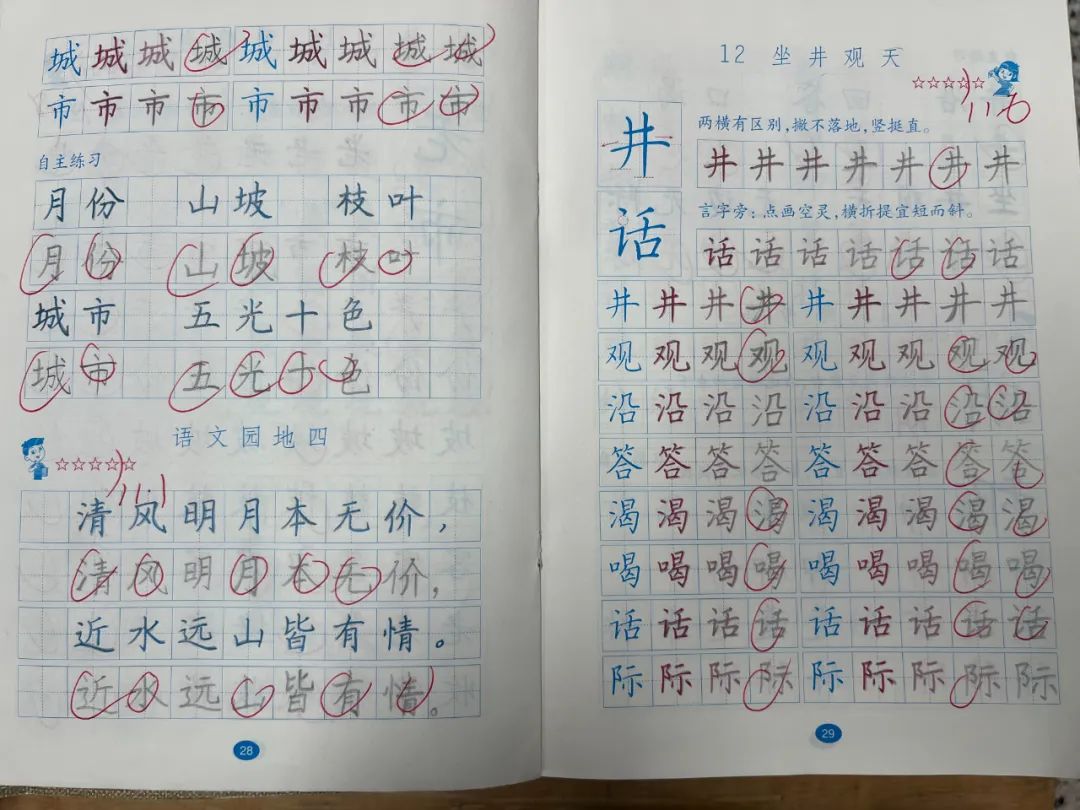 城城城城城城城城城
市市市市市市市市市
自主练习
月份 山坡 枝叶
月份 山坡 枝叶
城市 五光十色
城市 五光十色
语文园地四
☆☆☆☆☆
11.1
清风明月本无价，
清风明月本无价，
近水远山皆有情。
近水远山皆有情。
28
12 坐井观天
☆☆☆☆☆
11.6
井
两横有区别，撇不落地，竖挺直。
井井井井井井井
话
言字旁：点画空灵，横折提宜短而斜。
话话话话话话话
井井井井井井井井井
观观观观观观观观观
沿沿沿沿沿沿沿沿沿
答答答答答答答答答
渴渴渴渴渴渴渴渴渴
喝喝喝喝喝喝喝喝喝
话话话话话话话话话
际际际际际际际际际
29